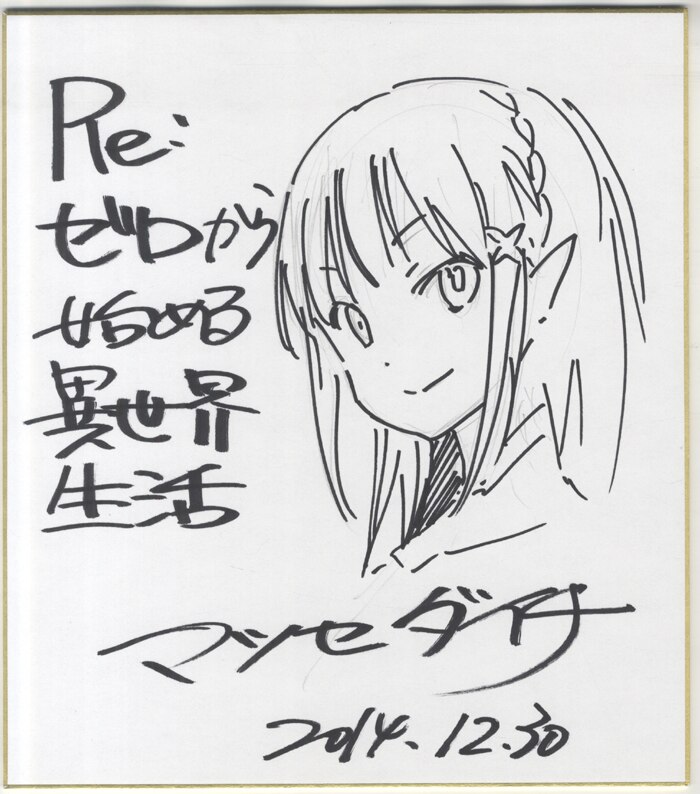 Re:
ゼロから
始める
異世界
生活
マツセダイチ
2014.12.30